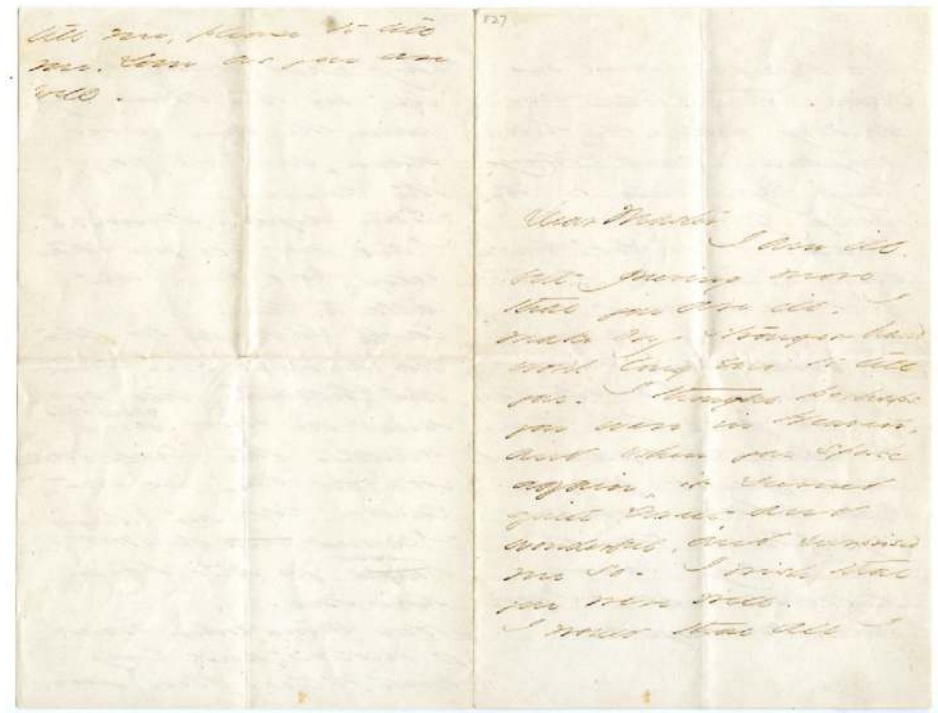 tell me, please to tell
me, soon as you are
well.
827
Dear Master
I am ill.
but grieving more
that you are ill. I
make my stronger hand
work long eno' to tell
you. I thought perhaps
you were in Heaven,
and when you spoke
again, it seemed
quite sweet, and
wonderful, and surprised
me so. I wish that
you were well.
I would that all I